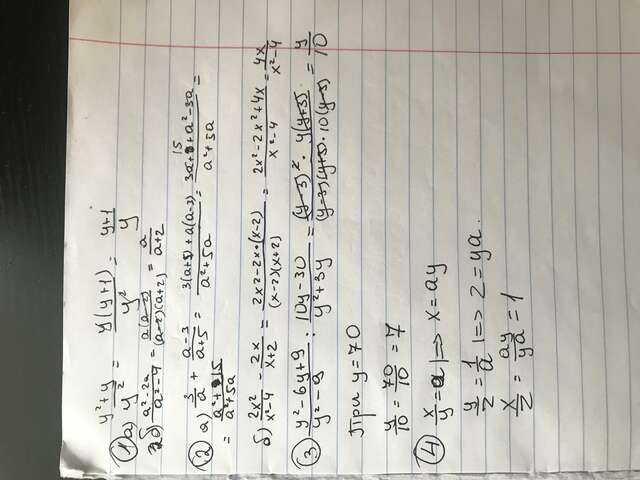 ① а) (y²+y)/y² = y(y+1)/y² = (y+1)/y
б) (a²-2a)/(a²-4) = a(a-2)/((a-2)(a+2)) = a/(a+2)
② а) 3/a + (a-3)/(a+5) = (3(a+5)+a(a-3))/(a²+5a) = (3a+15+a²-3a)/(a²+5a) =
= (a²+15)/(a²+5a)
б) 2x²/(x²-4) - 2x/(x+2) = (2x²-2x·(x-2))/((x-2)(x+2)) = (2x²-2x²+4x)/(x²-4) = 4x/(x²-4)
③ (y²-6y+9)/(y²-9) : (10y-30)/(y²+3y) = ((y-3)²·y(y+3))/((y-3)(y+3)·10(y-3)) = y/10
При y=70
y/10 = 70/10 = 7
④ x/y = a |=> x = ay
y/z = 1/a |=> z = ya.
x/z = ay/ya = 1